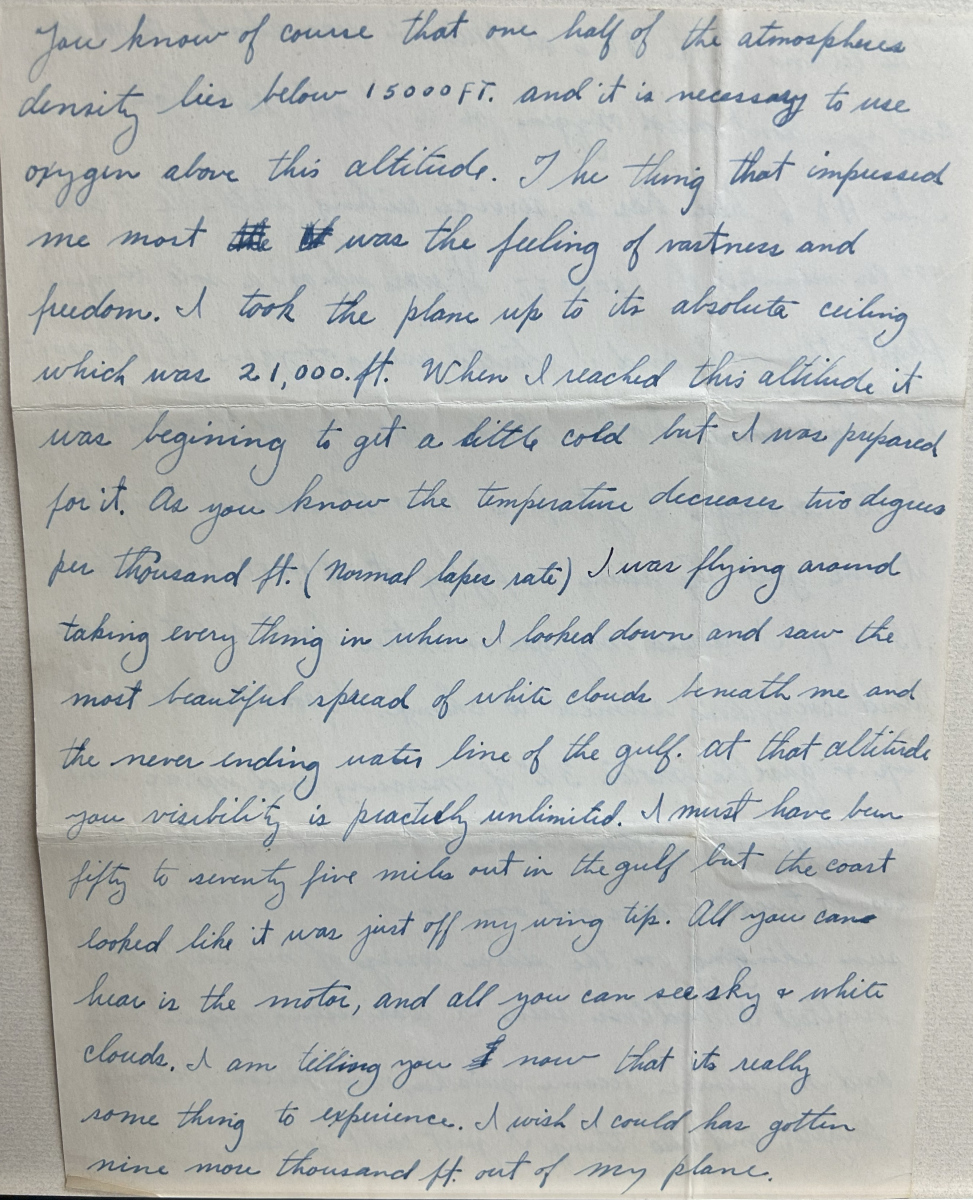 You know of course that one half of the atmospheres
density lies below 15000FT. and it is necessary to use
oxygen above this altitude. The thing that impressed
me most was the feeling of vastness and
freedom. I took the plane up to its absolute ceiling
which was 21,000.ft. When I reached this altitude it
was begining to get a little cold but I was prepared
for it. As you know the temperature decreases two degrees
per thousand ft. (Normal lapes rate) I was flying around
taking every thing in when I looked down and saw the
most beautiful spread of white clouds beneath me and
the never ending water line of the gulf. at that altitude
you visibility is practicly unlimited. I must have been
fifty to seventy five miles out in the gulf but the coast
looked like it was just off my wing tip. All you can
hear is the motor, and all you can see sky & white
clouds. I am telling you now that its really
some thing to experience. I wish I could has gotten
nine more thousand ft. out of my plane.